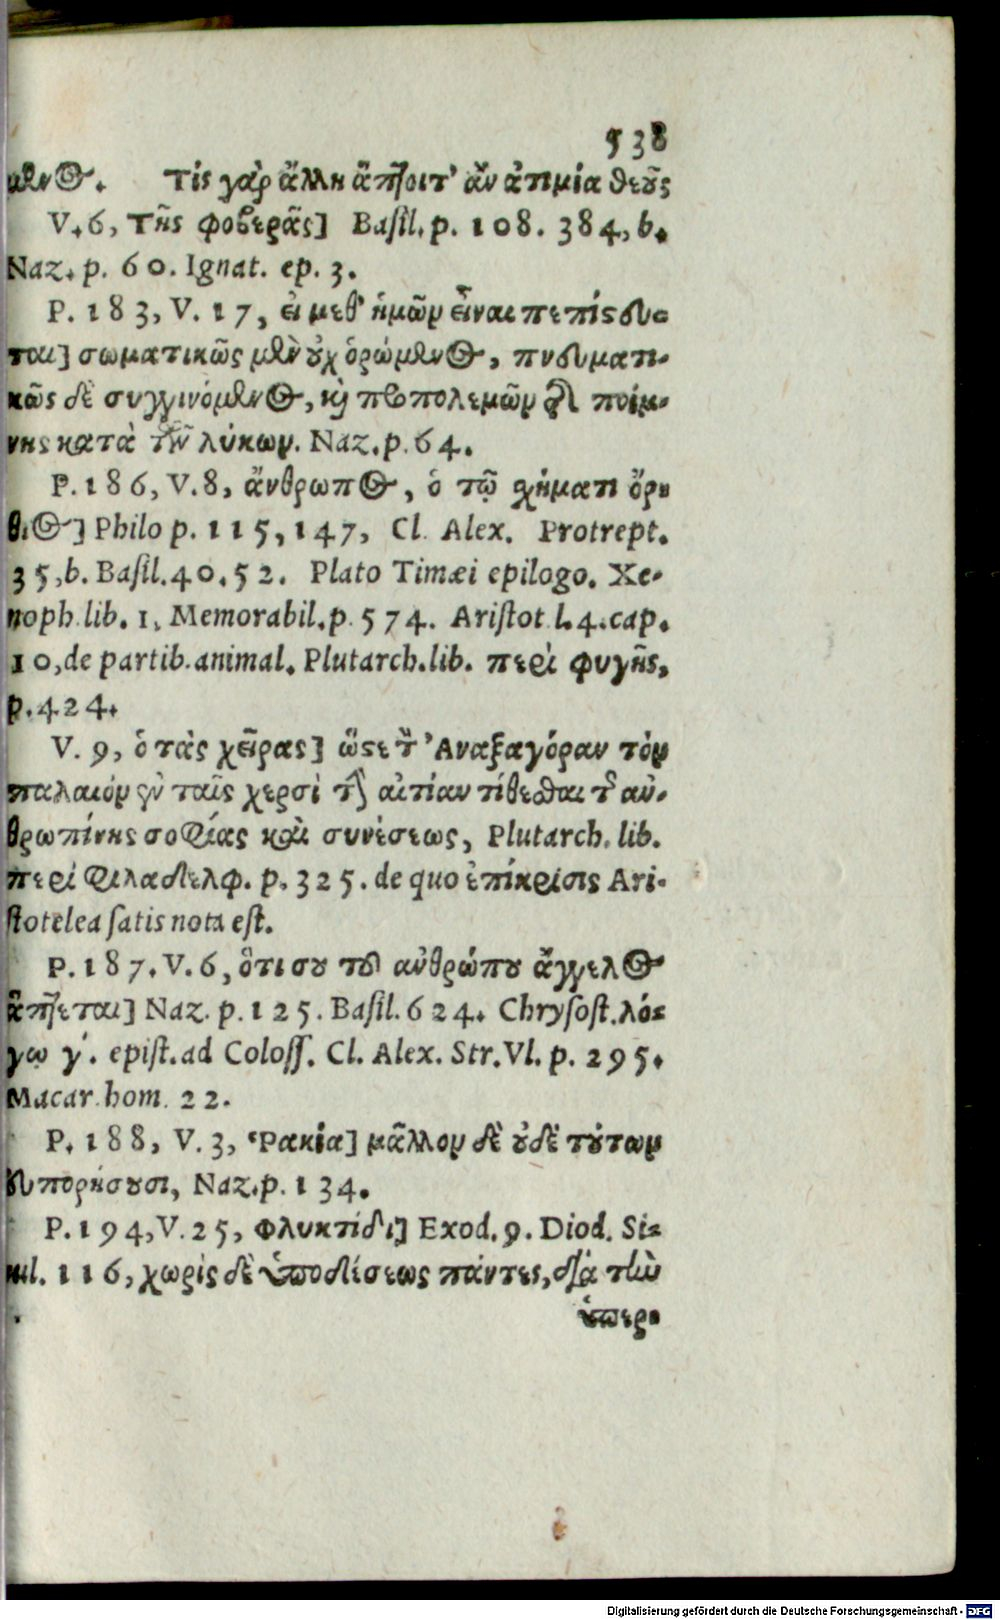 538
μενος. Τίς γὰρ ἄλλη ἅπτοιτ' ἂν ἀτιμία θεοῦς
V. 6, τῆς φοβερᾶς] Basil. p. 108. 384, b.
Naz. p. 60. Ignat. ep. 3.
P. 183, V. 17, εἰ μεθ' ἡμῶν εἶναι πεπίστευ=
ται] σωματικῶς μὲν οὐχ ὁρώμενος, πνευματι-
κῶς δὲ συγγινόμενος, καὶ προπολεμῶν τῆς ποίμ-
νης κατὰ τῶν λύκων. Naz. p. 64.
P. 186, V. 8, ἄνθρωπος, ὁ τῷ σχήματι ὄρ-
θιος] Philo p. 115, 147, Cl. Alex. Protrept.
35, b. Basil. 40. 52. Plato Timæi epilogo. Xe-
noph. lib. 1, Memorabil. p. 574. Aristot. l. 4. cap.
10, de partib. animal. Plutarch. lib. περὶ φυγῆς,
p. 424.
V. 9, ὁ τὰς χεῖρας] ὥστε τ Ἀναξαγόραν τὸν
παλαιὸν ἐν ταῖς χερσὶ τὴν αἰτίαν τίθεσθαι τῆς ἀν-
θρωπίνης σοφίας καὶ συνέσεως, Plutarch. lib.
περὶ φιλαδελφ. p. 325. de quo ἐπίκρισις Ari-
stotelea satis nota est.
P. 187. V. 6, ὅτι σου τοῦ ἀνθρώπου ἄγγελος
ἅπτεται] Naz. p. 125. Basil. 624. Chrysost. λό=
γῳ γ'. epist. ad Coloss. Cl. Alex. Str. VI. p. 295.
Macar. hom. 22.
P. 188, V. 3, Ῥακία] μᾶλλον δὲ οὐδὲ τούτων
εὐπορήσουσι, Naz. p. 134.
P. 194, V. 25, φλυκτίδι] Exod. 9. Diod. Si=
cul. 116, χωρὶς δὲ ὑποδέσεως πάντες, διὰ τὴν
ὑπερ-
Digitalisierung gefördert durch die Deutsche Forschungsgemeinschaft - DFG